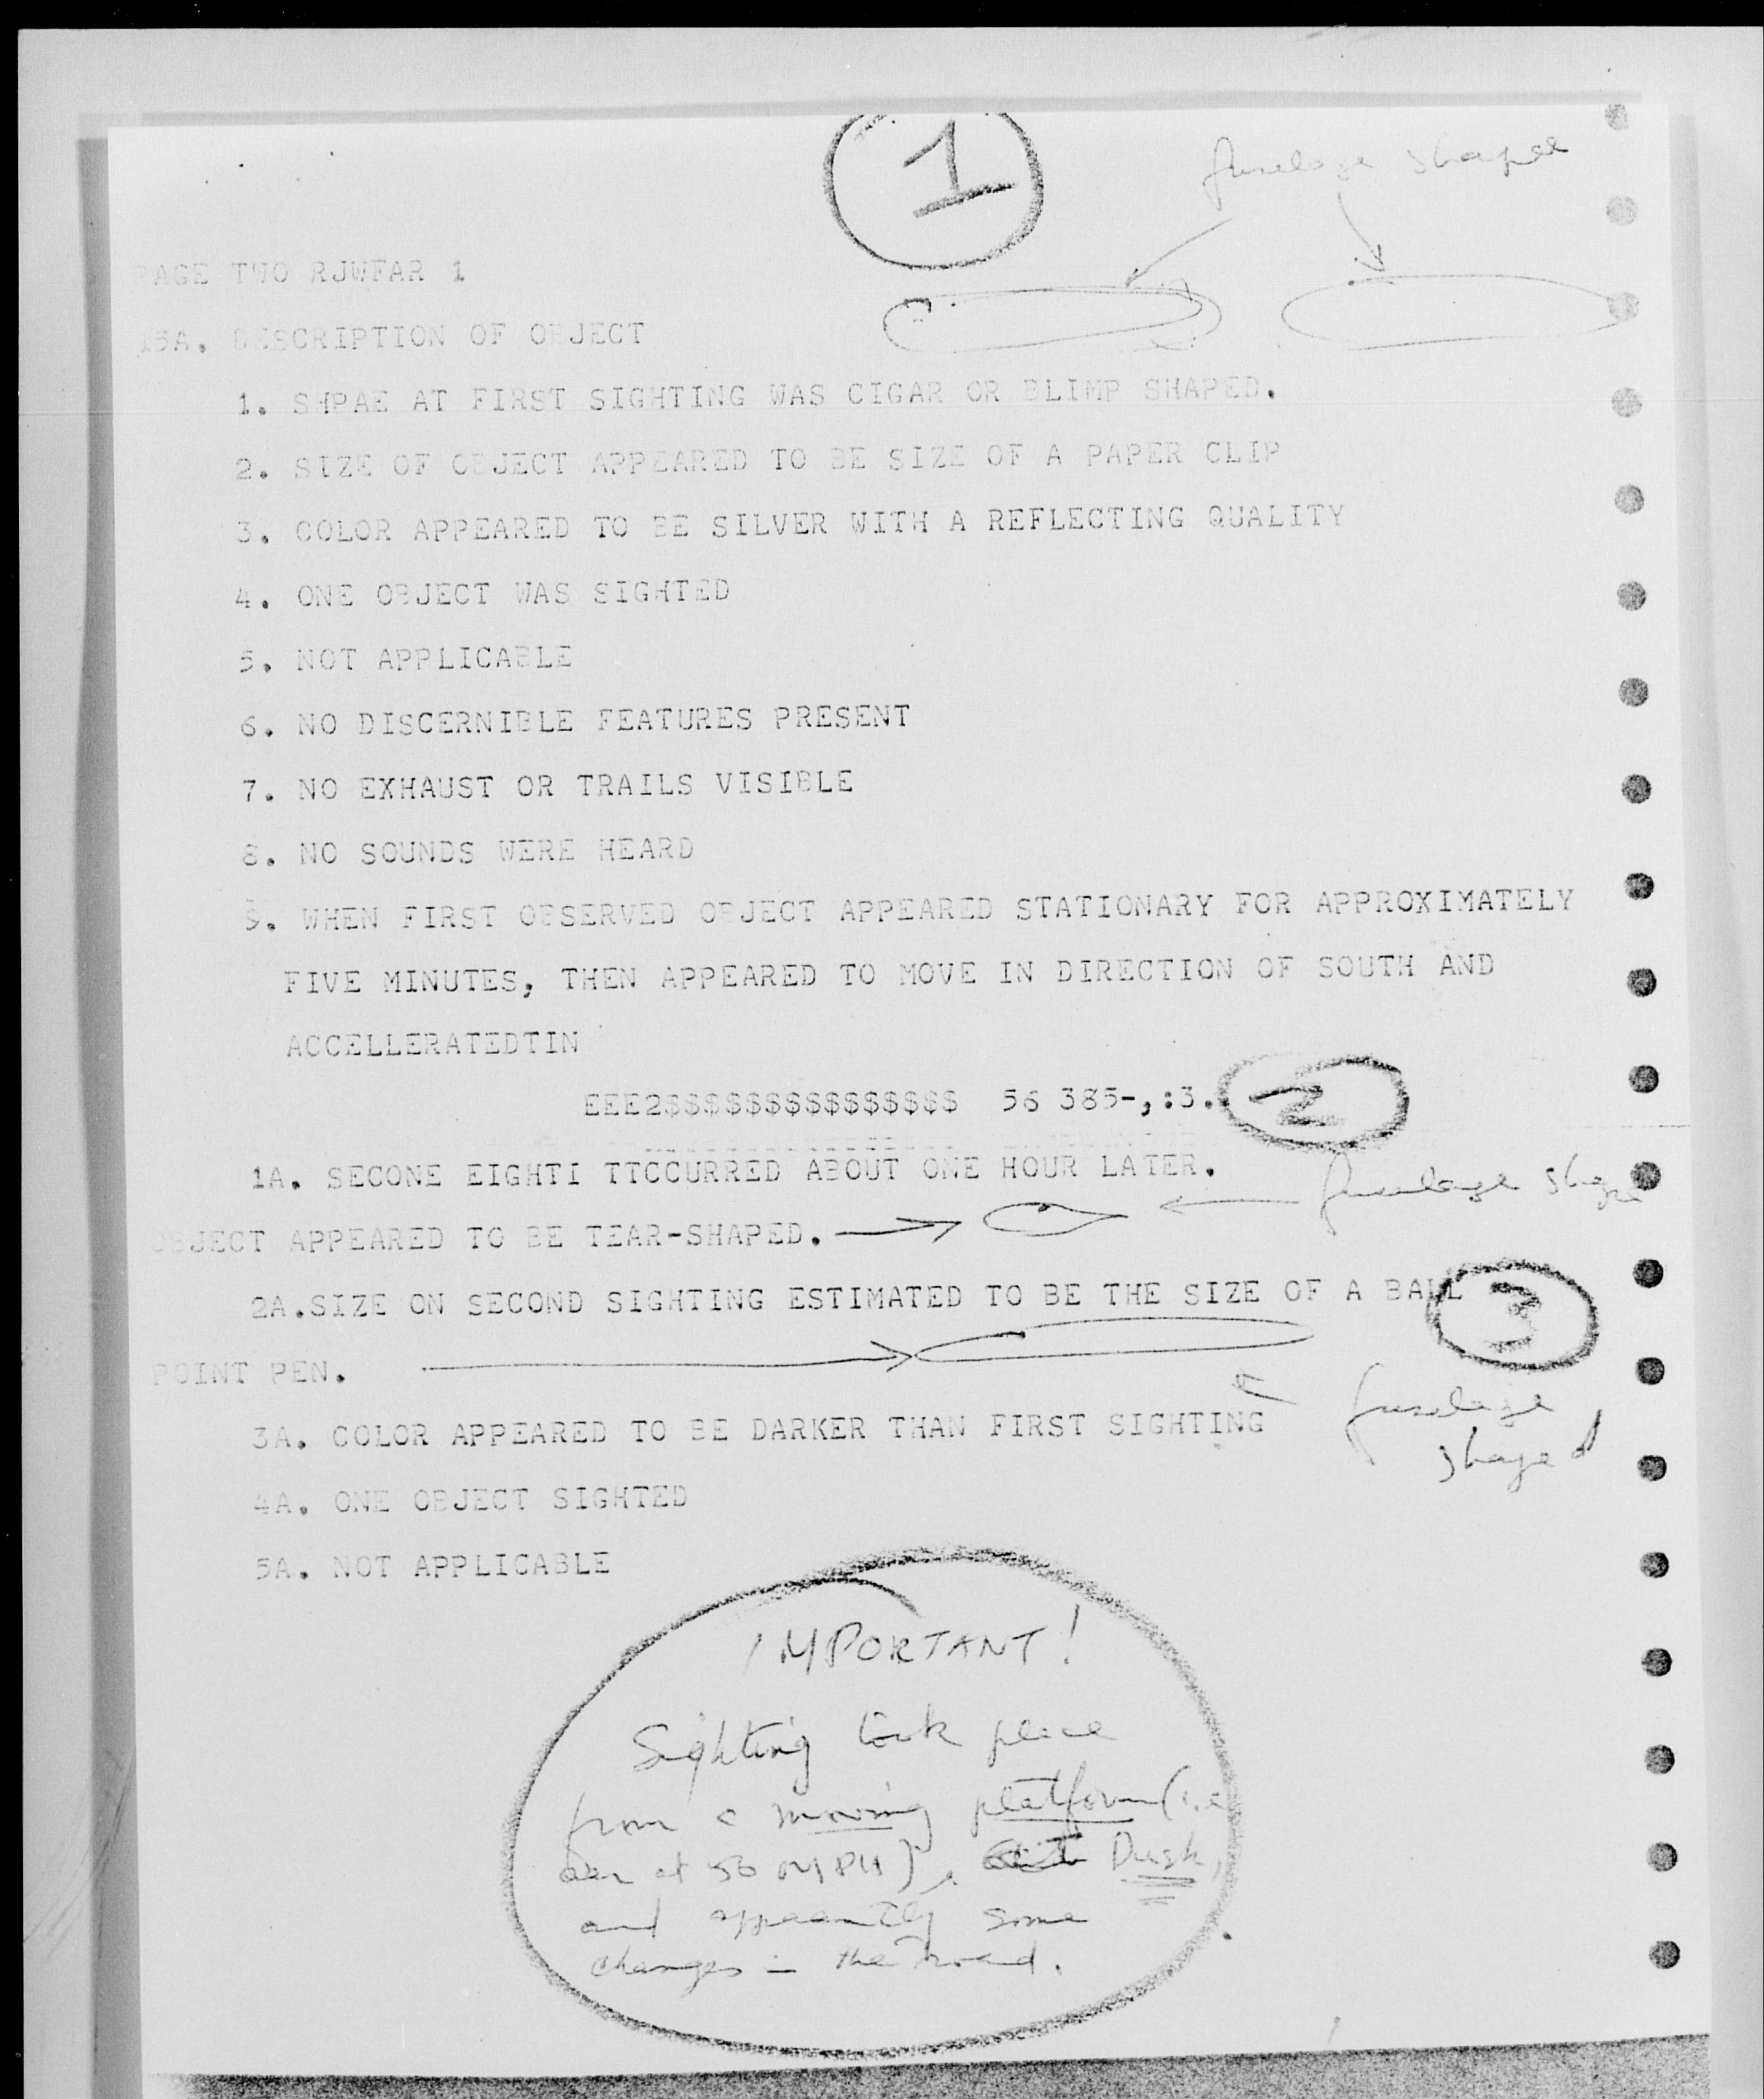 1
fuselage shaped
PAGE TWO RJWFAR 1
15A. DESCRIPTION OF OBJECT
1. SHPAE AT FIRST SIGHTING WAS CIGAR OR BLIMP SHAPED.
2. SIZE OF OBJECT APPEARED TO BE SIZE OF A PAPER CLIP
3. COLOR APPEARED TO BE SILVER WITH A REFLECTING QUALITY
4. ONE OBJECT WAS SIGHTED
5. NOT APPLICABLE
6. NO DISCERNIBLE FEATURES PRESENT
7. NO EXHAUST OR TRAILS VISIBLE
8. NO SOUNDS WERE HEARD
9. WHEN FIRST OBSERVED OBJECT APPEARED STATIONARY FOR APPROXIMATELY
FIVE MINUTES, THEN APPEARED TO MOVE IN DIRECTION OF SOUTH AND
ACCELLERATEDTIN
EEE2$$$$$$$$$$$$$$$ 56 385-,:3. 2
1A. SECONE EIGHTI TTCCURRED ABOUT ONE HOUR LATER.
fuselage shape
OBJECT APPEARED TO BE TEAR-SHAPED.
2A.SIZE ON SECOND SIGHTING ESTIMATED TO BE THE SIZE OF A BALL 3
POINT PEN.
fuselage
shaped
3A. COLOR APPEARED TO BE DARKER THAN FIRST SIGHTING
4A. ONE OBJECT SIGHTED
5A. NOT APPLICABLE
IMPORTANT!
Sighting took place
from a moving platform (i.e
car at 50 MPH), Dusk,
and apparently some
changes in the road.